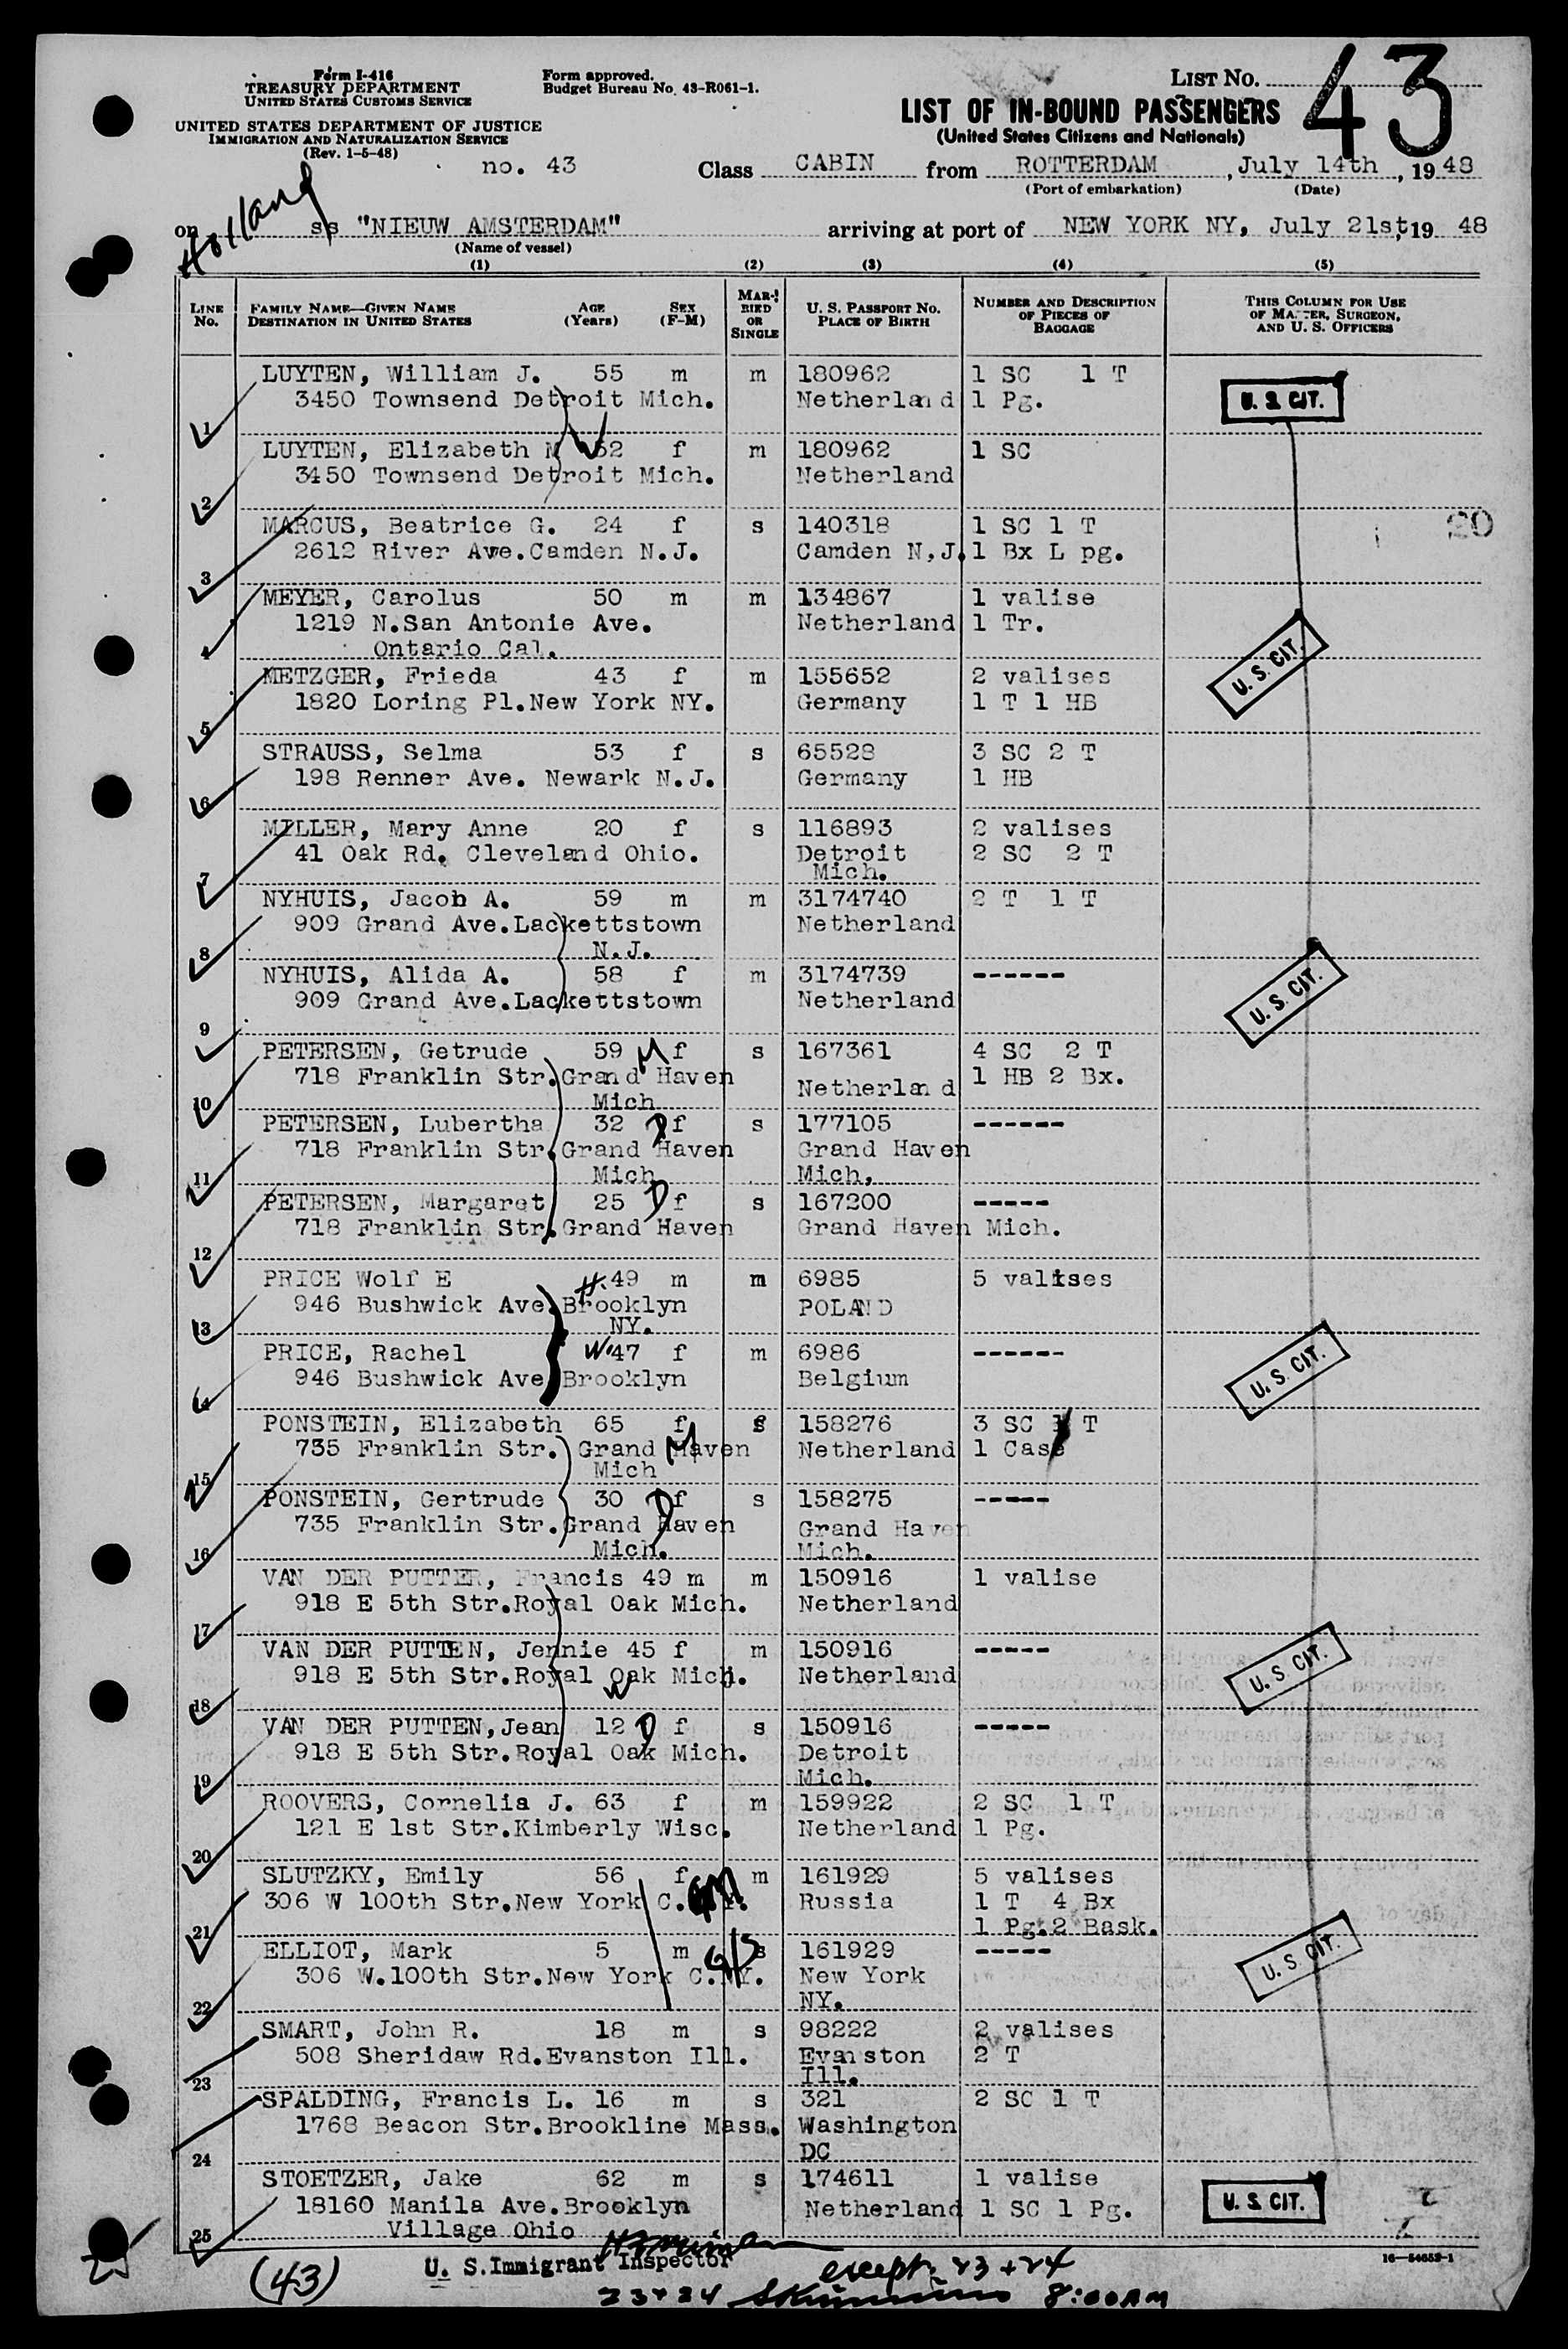 Form I-416
TREASURY DEPARTMENT
UNITED STATES CUSTOMS SERVICE
UNITED STATES DEPARTMENT OF JUSTICE
IMMIGRATION AND NATURALIZATION SERVICE
(Rev. 1-5-48)
Form approved.
Budget Bureau No. 43-R061-1.
LIST NO. 43
LIST OF IN-BOUND PASSENGERS
(United States Citizens and Nationals)
no. 43 Class CABIN from ROTTERDAM, July 14th, 1948
(Port of embarkation) (Date)
Holland
on ss "NIEUW AMSTERDAM" arriving at port of NEW YORK NY, July 21st, 19 48
(Name of vessel)
(1) (2) (3) (4) (5)
LINE No. FAMILY NAME—GIVEN NAME DESTINATION IN UNITED STATES AGE (Years) SEX (F-M) MARRIED OR SINGLE U. S. PASSPORT NO. PLACE OF BIRTH NUMBER AND DESCRIPTION OF PIECES OF BAGGAGE THIS COLUMN FOR USE OF MASTER, SURGEON, AND U. S. OFFICERS
LUYTEN, William J. 55 m m 180962 1 SC 1 T
3450 Townsend Detroit Mich. Netherland 1 Pg. U. S. CIT.
1
LUYTEN, Elizabeth M 52 f m 180962 1 SC
3450 Townsend Detroit Mich. Netherland
2
MARCUS, Beatrice G. 24 f s 140318 1 SC 1 T 20
2612 River Ave.Camden N.J. Camden N,J. 1 Bx L pg.
3
MEYER, Carolus 50 m m 134867 1 valise
1219 N.San Antonie Ave. Netherland 1 Tr.
4 Ontario Cal. U. S. CIT.
METZGER, Frieda 43 f m 155652 2 valises
1820 Loring Pl.New York NY. Germany 1 T 1 HB
5
STRAUSS, Selma 53 f s 65528 3 SC 2 T
198 Renner Ave. Newark N.J. Germany 1 HB
6
MILLER, Mary Anne 20 f s 116893 2 valises
41 Oak Rd. Cleveland Ohio. Detroit 2 SC 2 T
7 Mich.
NYHUIS, Jacob A. 59 m m 3174740 2 T 1 T
909 Grand Ave.Lackettstown Netherland
8 N.J.
NYHUIS, Alida A. 58 f m 3174739 ------
909 Grand Ave.Lackettstown Netherland U. S. CIT.
9
PETERSEN, Getrude 59 M f s 167361 4 SC 2 T
718 Franklin Str.Grand Haven Netherland 1 HB 2 Bx.
10 Mich
PETERSEN, Lubertha 32 D f s 177105 ------
718 Franklin Str.Grand Haven Grand Haven
11 Mich Mich.
PETERSEN, Margaret 25 D f s 167200 -----
718 Franklin Str.Grand Haven Grand Haven Mich.
12
PRICE Wolf E H. 49 m m 6985 5 valises
946 Bushwick Ave.Brooklyn POLAND
13 NY.
PRICE, Rachel W. 47 f m 6986 ------
946 Bushwick Ave Brooklyn Belgium U. S. CIT.
14
PONSTEIN, Elizabeth 65 f s 158276 3 SC 1 T
735 Franklin Str. Grand Haven M Netherland 1 Case
15 Mich
PONSTEIN, Gertrude 30 D f s 158275 -----
735 Franklin Str.Grand Haven Grand Haven
16 Mich. Mich.
VAN DER PUTTER, Francis 49 m m 150916 1 valise
918 E 5th Str.Royal Oak Mich. Netherland
17
VAN DER PUTTEN, Jennie 45 f m 150916 -----
918 E 5th Str.Royal Oak Mich. Netherland U. S. CIT.
18 W
VAN DER PUTTEN,Jean 12 D f s 150916 -----
918 E 5th Str.Royal Oak Mich. Detroit
19 Mich.
ROOVERS, Cornelia J. 63 f m 159922 2 SC 1 T
121 E 1st Str.Kimberly Wisc. Netherland 1 Pg.
20
SLUTZKY, Emily 56 f m 161929 5 valises
306 W 100th Str.New York C. GM Russia 1 T 4 Bx
21 1 Pg.2 Bask.
ELLIOT, Mark 5 m G/S s 161929 -----
306 W.100th Str.New York C.NY. New York U. S. CIT.
22 NY.
SMART, John R. 18 m s 98222 2 valises
508 Sheridaw Rd.Evanston Ill. Evanston 2 T
23 Ill.
SPALDING, Francis L. 16 m s 321 2 SC 1 T
1768 Beacon Str.Brookline Mass. Washington
24 DC
STOETZER, Jake 62 m s 174611 1 valise
18160 Manila Ave.Brooklyn Netherland 1 SC 1 Pg. U. S. CIT.
25 Village Ohio
U. S. Immigrant Inspector 16—54652-1
(43) except 23 + 24
23 + 24 8:00 AM